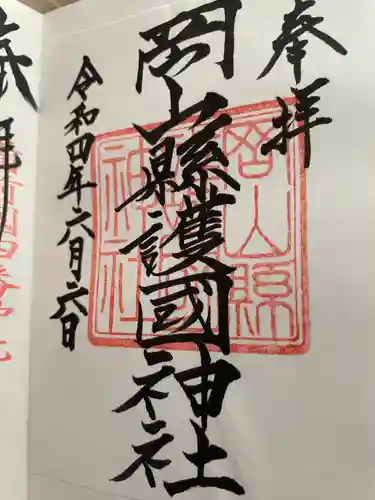 奉拝
岡山縣護國神社
令和四年六月六日
岡山縣
護國
神社
拝